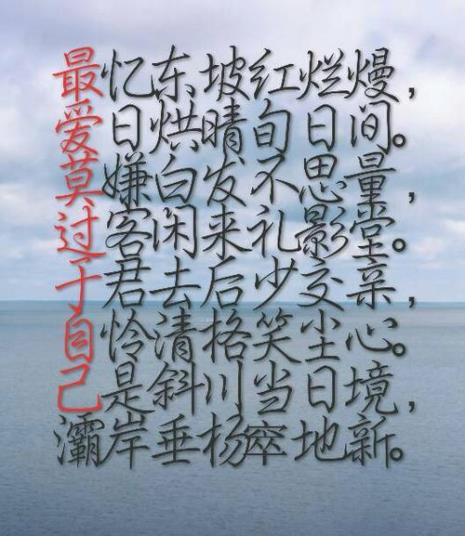 最忆东坡红烂熳，
爱日烘晴旬日间。
莫嫌白发不思量，
过客闲来礼影堂。
于君去后少交亲，
自怜清格笑尘心。
己是斜川当日境，
灞岸垂杨窣地新。